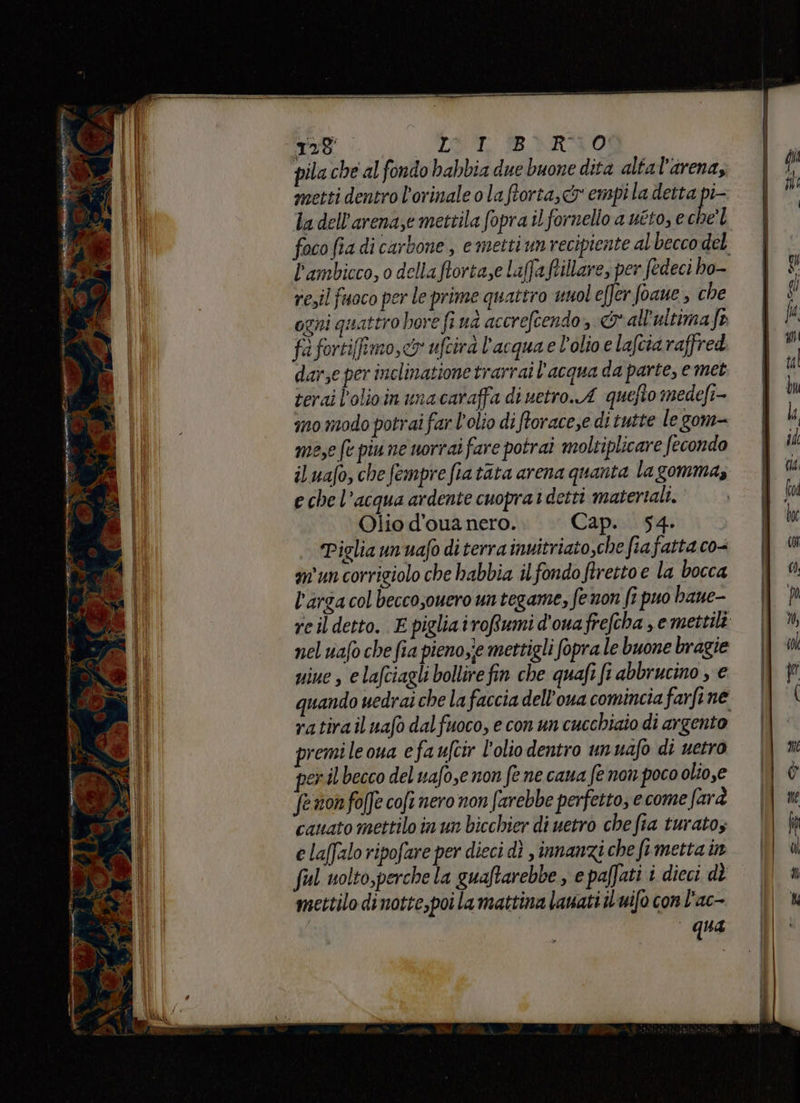 128 L I B R O
pila che al fondo habbia due buone dita alta l'arena,
metti dentro l'orinale o la ſtorta,& empi la detta pi-
la dell'arena,e mettila ſopra il fornello a uẽto, e che'l
foco ſia di carbone, e metti un recipiente al becco del
l'ambicco, o della ſtorta,e laſſa ſtillare, per ſedeci ho-
re,il fuoco per le prime quattro uuol eſſer ſoaue, che
ogni quattro hore ſi uà accreſcendo, & all'ultima ſi
fà fortiſſimo,& uſcirà l'acqua e l'olio e laſcia raffred
dar,e per inclinatione trarrai l'acqua da parte, e met
terai l'olio in una caraffa di uetro. A queſto medeſi-
mo modo potrai far l'olio di ſtorace,e di tutte le gom-
me,e ſe piu ne uorrai fare potrai moltiplicare ſecondo
il uaſo, che ſempre ſia tãta arena quanta la gomma,
e che l'acqua ardente cuopra i detti materiali.
Olio d'oua nero. Cap. 54.
Piglia un uaſo di terra inuitriato,che ſia fatta co-
m'un corrigiolo che habbia il fondo ſtretto e la bocca
l'arga col becco,ouero un tegame, ſe non ſi può haue-
re il detto. E piglia i roſſumi d'oua freſcha, e mettili
nel uaſo che ſia pieno,e mettigli ſopra le buone bragie
uiue, e laſciagli bollire fin che quaſi ſi abbrucino, e
quando uedrai che la faccia dell'oua comincia farſi ne
ra tira il uaſo dal fuoco, e con un cucchiaio di argento
premi le oua e fa uſcir l'olio dentro un uaſo di uetro
per il becco del uaſo,e non ſe ne caua ſe non poco olio,e
ſe non foſſe coſi nero non ſarebbe perfetto, e come ſarà
cauato mettilo in un bicchier di uetro che ſia turato,
e laſſalo ripoſare per dieci dì, innanzi che ſi metta in
ſul uolto,perche la guaſtarebbe, e paſſati i dieci dì
mettilo di notte,poi la mattina lauati il uiſo con l'ac-
qua